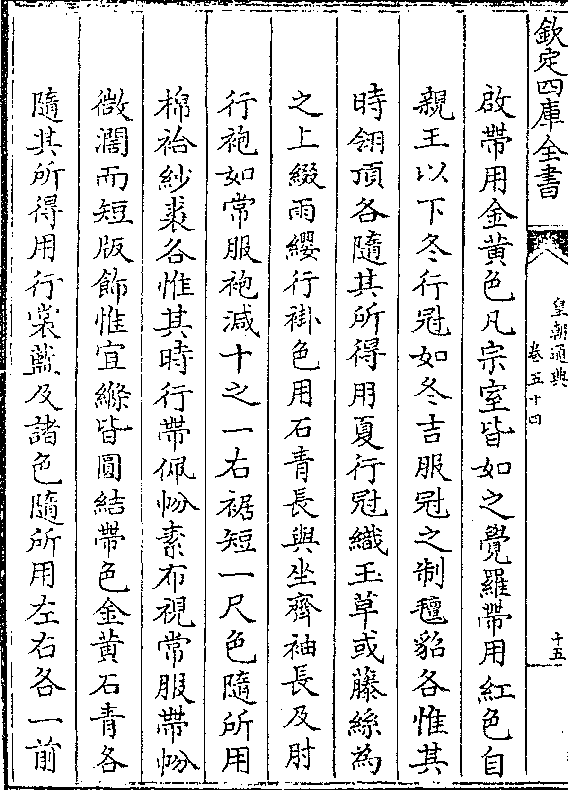 欽定四庫全書
皇朝通典
卷五十四
十五
啟帶用金黄色凡宗室皆如之覺羅帶用紅色自
親王以下冬行冠如冬吉服冠之制氊貂各惟其
時翎頂各隨其所得用夏行冠織玉草或藤絲為
之上綴雨纓行褂色用石青長與坐齊袖長及肘
行袍如常服袍減十之一右裾短一尺色隨所用
棉袷紗裘各惟其時行帶佩帉素布視常服帶帉
微濶而短版飾惟宜縧皆圓結帶色金黄石青各
隨其所得用行裳藍及諸色隨所用左右各一前